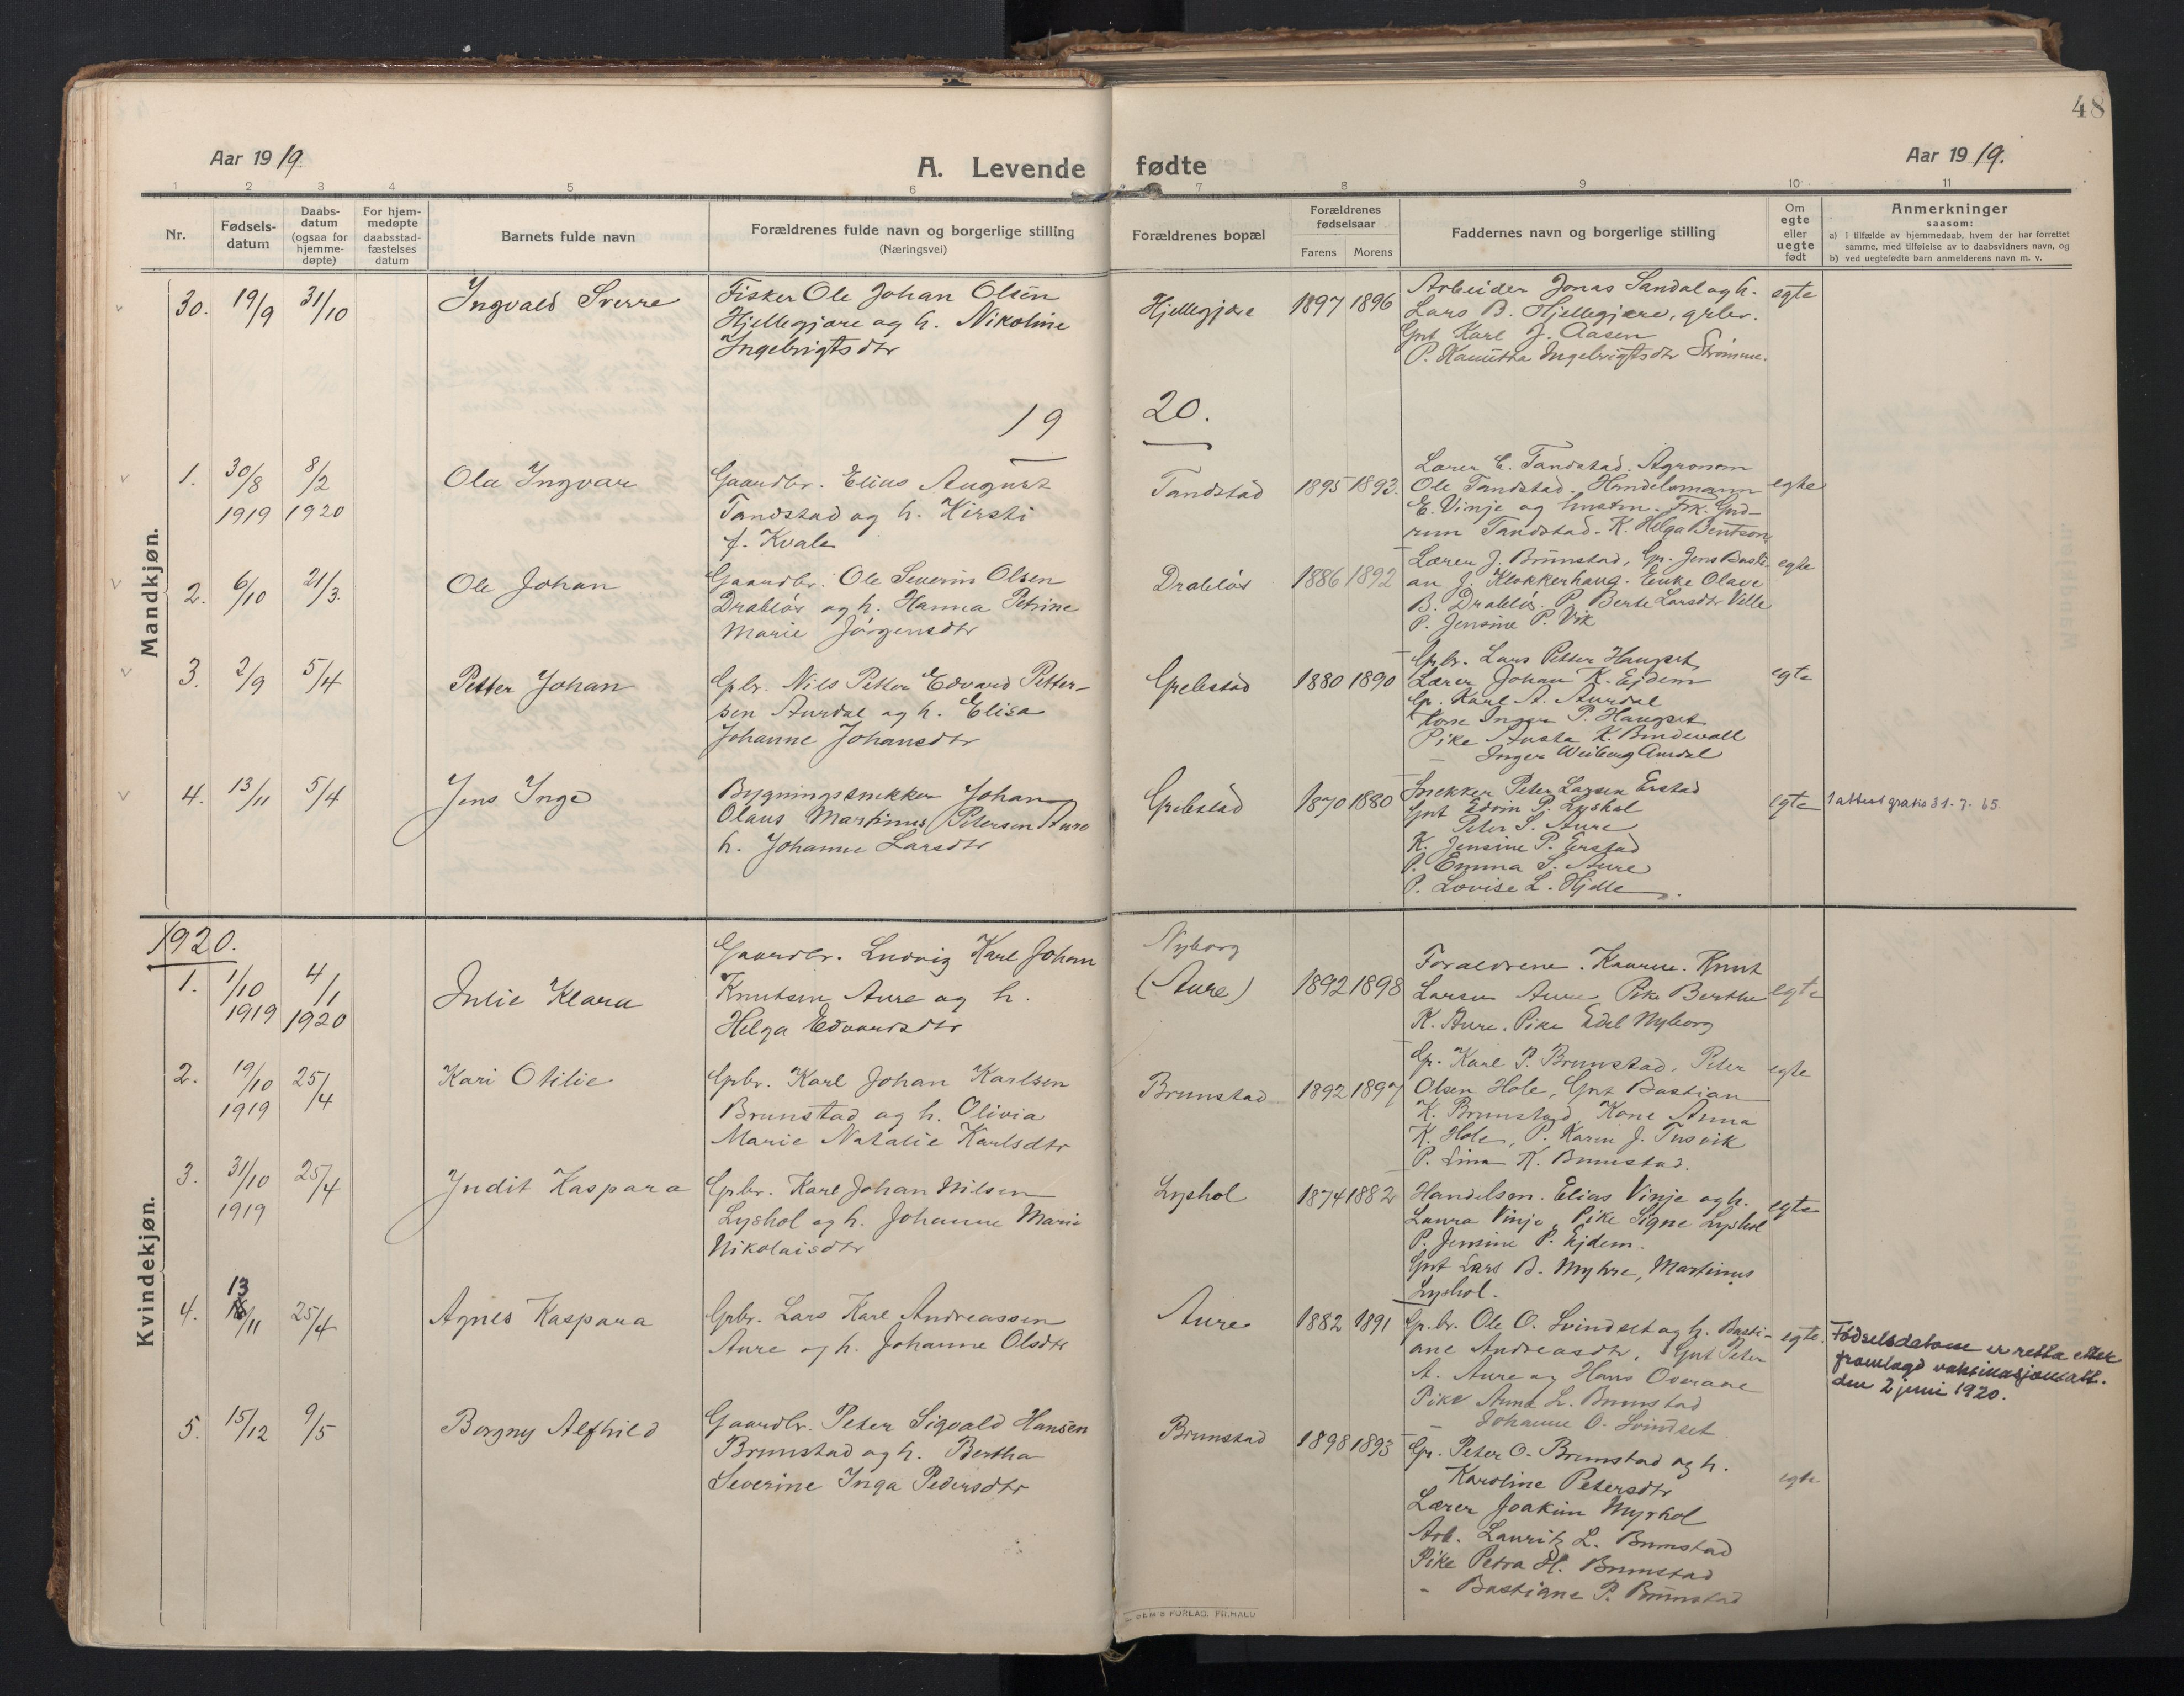 48
Aar 1919.
A. Levende fødte
Aar 1919.
1 2 3 4 5 6 7 8 9 10 11
Nr.
Fødsels-
datum
Daabs-
datum
(ogsaa for
hjemme-
døpte)
For hjem-
medøpte
daabsstad-
fæstelses
datum
Barnets fulde navn
Forældrenes fulde navn og borgerlige stilling
(Næringsvei)
Forældrenes bopæl
Forældrenes
fødselsaar
Farens Morens
Faddernes navn og borgerlige stilling
Om
egte
eller
uegte
født
Anmerkninger
saasom:
a) i tilfælde av hjemmedaab, hvem der har forrettet
samme, med tilføielse av to daabsvidners navn, og
b) ved uegtefødte barn anmelderens navn m. v.
Mandkjøn.
30. 19/9 31/10
Ingvald Sverre
Fisker Ole Johan Olsen
Hjellegjære og h. Nikoline
Ingebrigtsdtr
Hjellegjære
1897 1896
Arbeider Jonas Sandal og h.
Lars B. Hjellegjære, grbr.
Gut Karl J. Aasen
P. Ingebrigtsdtr Strømme.
egte
1920.
1. 30/8 1919 8/2 1920
Ola Ingvar
Gaardbr. Elias August
Tandstad og h. Kirsti
f. Kvale
Tandstad
1895 1893.
Lærer E. Tandstad. Agronom
Ole Tandstad. Handelsmann
E. Vinje og hustru. Frk. Gud-
run Tandstad. K. Helga Bentson
egte
2. 6/10 21/3.
Ole Johan
Gaardbr. Ole Severin Olsen
Drabløs og h. Hanna Petrine
Marie Jørgensdtr
Drabløs
1886 1892
Lærer J. Brunstad, Gr. Jens Basti-
an J. Klokkerhaug. Enke Olave
B. Drabløs. P. Berte Larsdtr Velle
P. Jensine P. Vik
egte
3. 2/9 5/4
Petter Johan
Gbr. Nils Petter Edvard Petter-
sen Aurdal og h. Elisa
Johanne Johansdtr
Grebstad
1880 1890
Gbr. Lars Petter Haugset
Lærer Johan K. Ejdem
Gr. Karl A. Aurdal
Kone Inger P. Haugset
Pike Gusta K. Bindevall
– Inger Weiborg Aurdal
egte
4. 13/11 5/4
Jens Inge
Bygningssnekker Johan
Olaus Martinus Petersen Aure
h. Johanne Larsdtr
Grebstad
1870 1880
Snekker Peter Larsen Erstad
Gut Edvin P. Lyshol
Peter S. Aure
K. Jensine P. Erstad
P. Emma S. Aure
P. Lovise L. Hjelle.
egte
1 attest gratis 31-7-65.
Kvindekjøn.
1920.
1. 1/10 1919 4/1 1920
Julie Klara
Gaardbr. Ludvig Karl Johan
Knutsen Aure og h.
Helga Edvardsdtr
Nyborg
(Aure)
1892 1898
Forældrene. Knut
Larsen Aure Pike Berthe
K. Aure. Pike Edel Nyborg
egte
2. 19/10 1919 25/4
Kari Otilie
Gbr. Karl Johan Karlsen
Brunstad og h. Olivia
Marie Natalie Karlsdtr
Brunstad
1892 1897
Gr. Karl P. Brunstad, Peter
Olsen Hole, Gut Bastian
K. Brunstad, Kone Anna
K. Hole, P. Karen J. Tusvik
P. Lina K. Brunstad.
egte
3. 31/10 1919 25/4
Judit Kaspara
Gbr. Karl Johan Nilsen
Lyshol og h. Johanne Marie
Nikolaisdtr
Lyshol
1874 1882
Handelsm. Elias Vinje og h.
Laura Vinje, Pike Signe Lyshol
P. Jensine P. Ejdem.
Gut Lars B. Myhre, Martinus
Lyshol.
egte
4. 13/11 25/4
Agnes Kaspara
Gbr. Lars Karl Andreassen
Aure og h. Johanne Olsdtr
Aure
1882 1891
G.br. Ole O. Svindset og h. Basti-
ane Andreasdtr, Gut Peter
A. Aure og Hans Overane
Pike Anna L. Brunstad
– Johanne O. Svindset
egte.
Fødselsdatoen er retta etter
framlagd vaksinasjonsatt.
den 2 juni 1920.
5. 15/12 9/5
Borgny Alfhild
Gaardbr. Peter Sigvald Hansen
Brunstad og h. Bertha
Severine Inga Pedersdtr
Brunstad
1898 1893
Gr. Peter O. Brunstad og h.
Karoline Petersdtr
Lærer Joakim Myrhol
Arb. Lauritz L. Brunstad
Pike Petra H. Brunstad
– Bastiane P. Brunstad
egte
FORLAG,